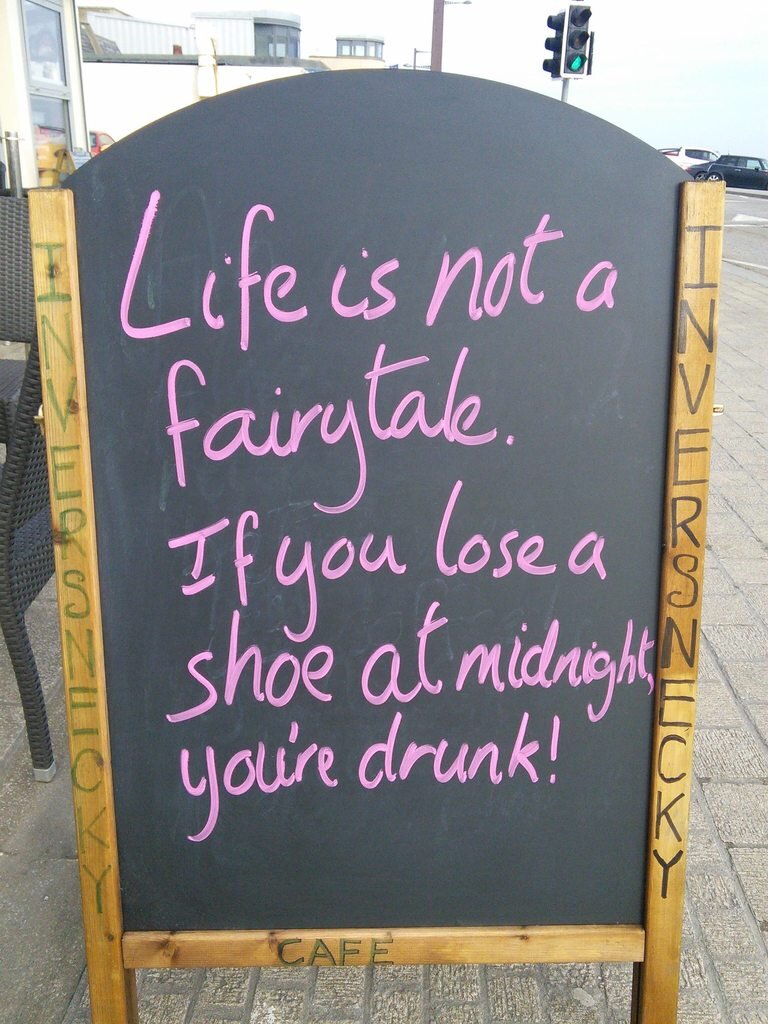 Life is not a
fairytale.
If you lose a
shoe at midnight,
you're drunk!
INVERSNECKY
INVERSNECKY
CAFE